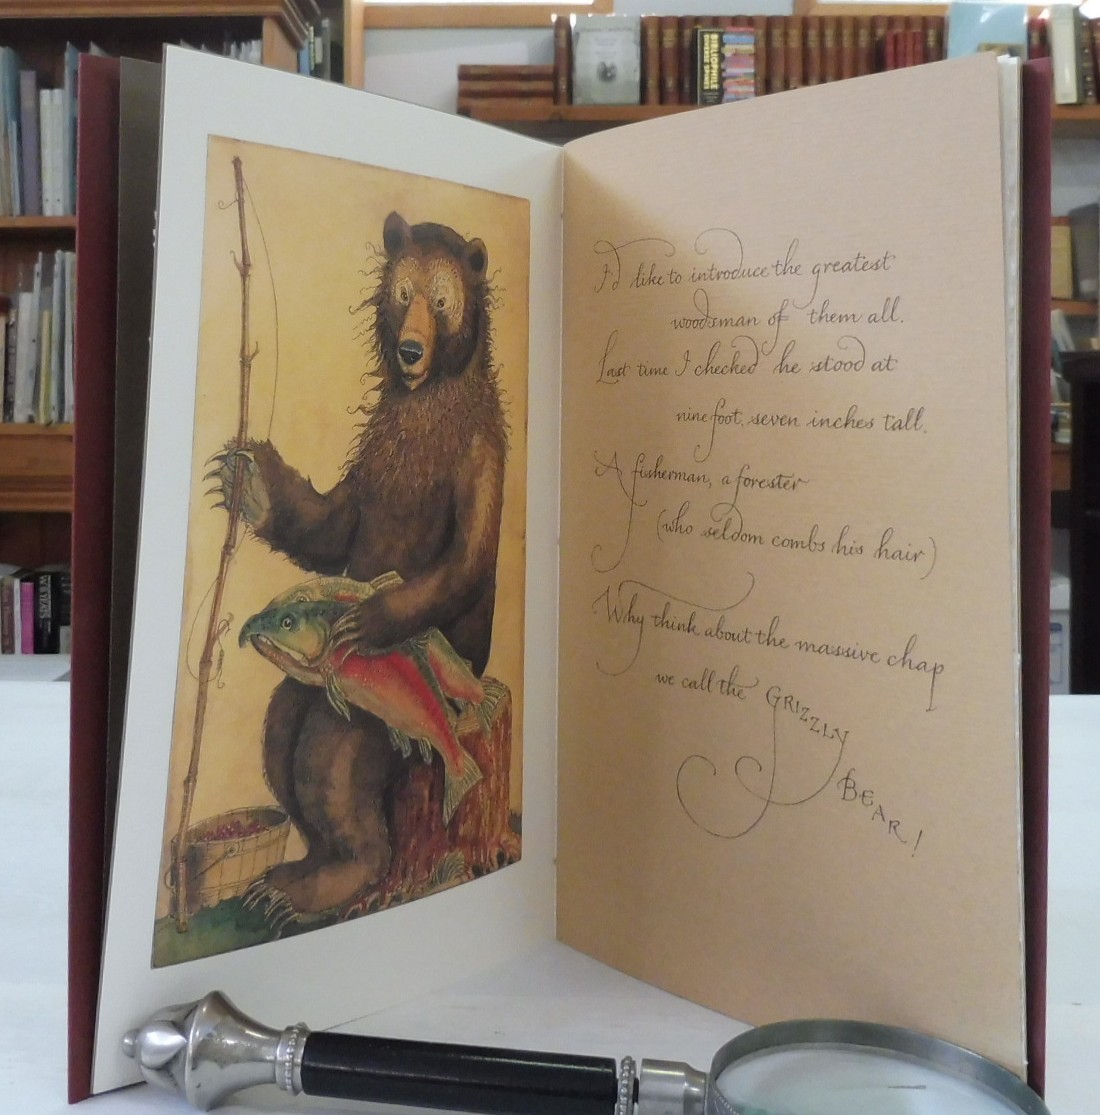 BIBLIOPHILE
I'd like to introduce the greatest
woodsman of them all.
Last time I checked he stood at
nine foot, seven inches tall.
A fisherman, a forester
(who seldom combs his hair)
Why think about the massive chap
we call the GRIZZLY
BEAR!
W.B. YEATS